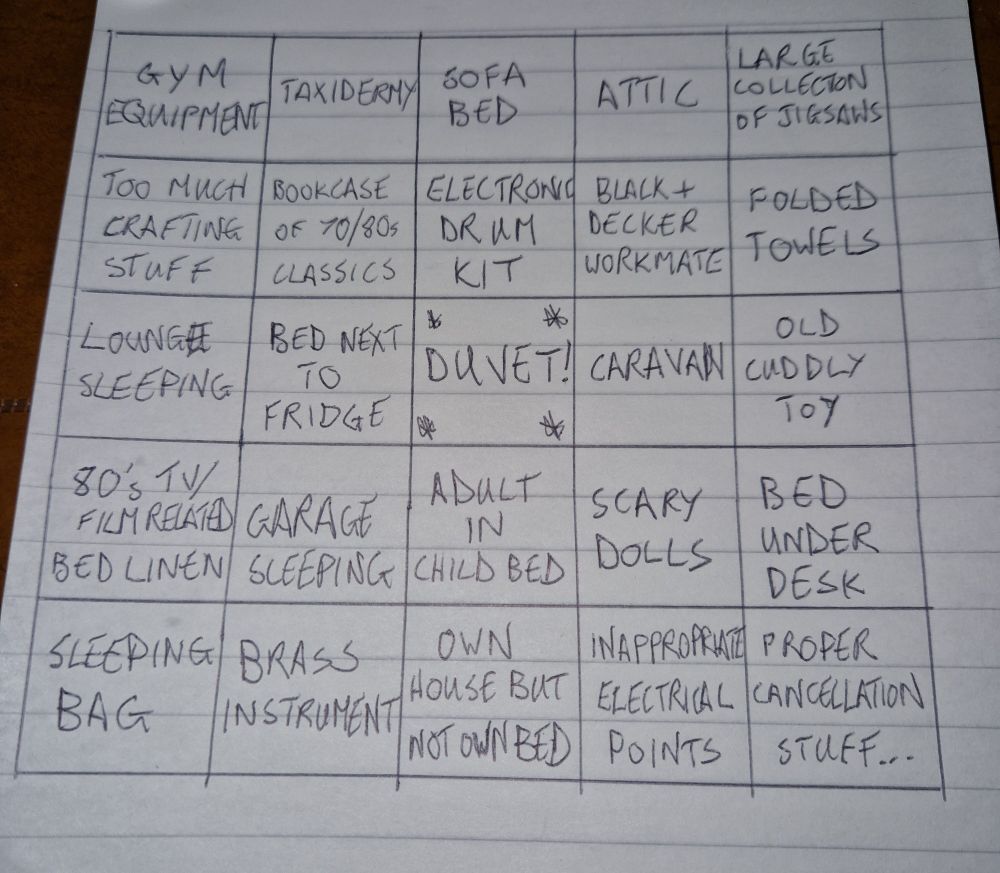 GYM
EQUIPMENT
TAXIDERMY
SOFA
BED
ATTIC
LARGE
COLLECTON
OF JIGSAWS
TOO MUCH
CRAFTING
STUFF
BOOKCASE
OF 70/80s
CLASSICS
ELECTRONIC
DRUM
KIT
BLACK +
DECKER
WORKMATE
FOLDED
TOWELS
LOUNGE
SLEEPING
BED NEXT
TO
FRIDGE
* *
DUVET!
* *
CARAVAN
OLD
CUDDLY
TOY
80's TV/
FILM RELATED
BED LINEN
GARAGE
SLEEPING
ADULT
IN
CHILD BED
SCARY
DOLLS
BED
UNDER
DESK
SLEEPING
BAG
BRASS
INSTRUMENT
OWN
HOUSE BUT
NOT OWN BED
INAPPROPRIATE
ELECTRICAL
POINTS
PROPER
CANCELLATION
STUFF...